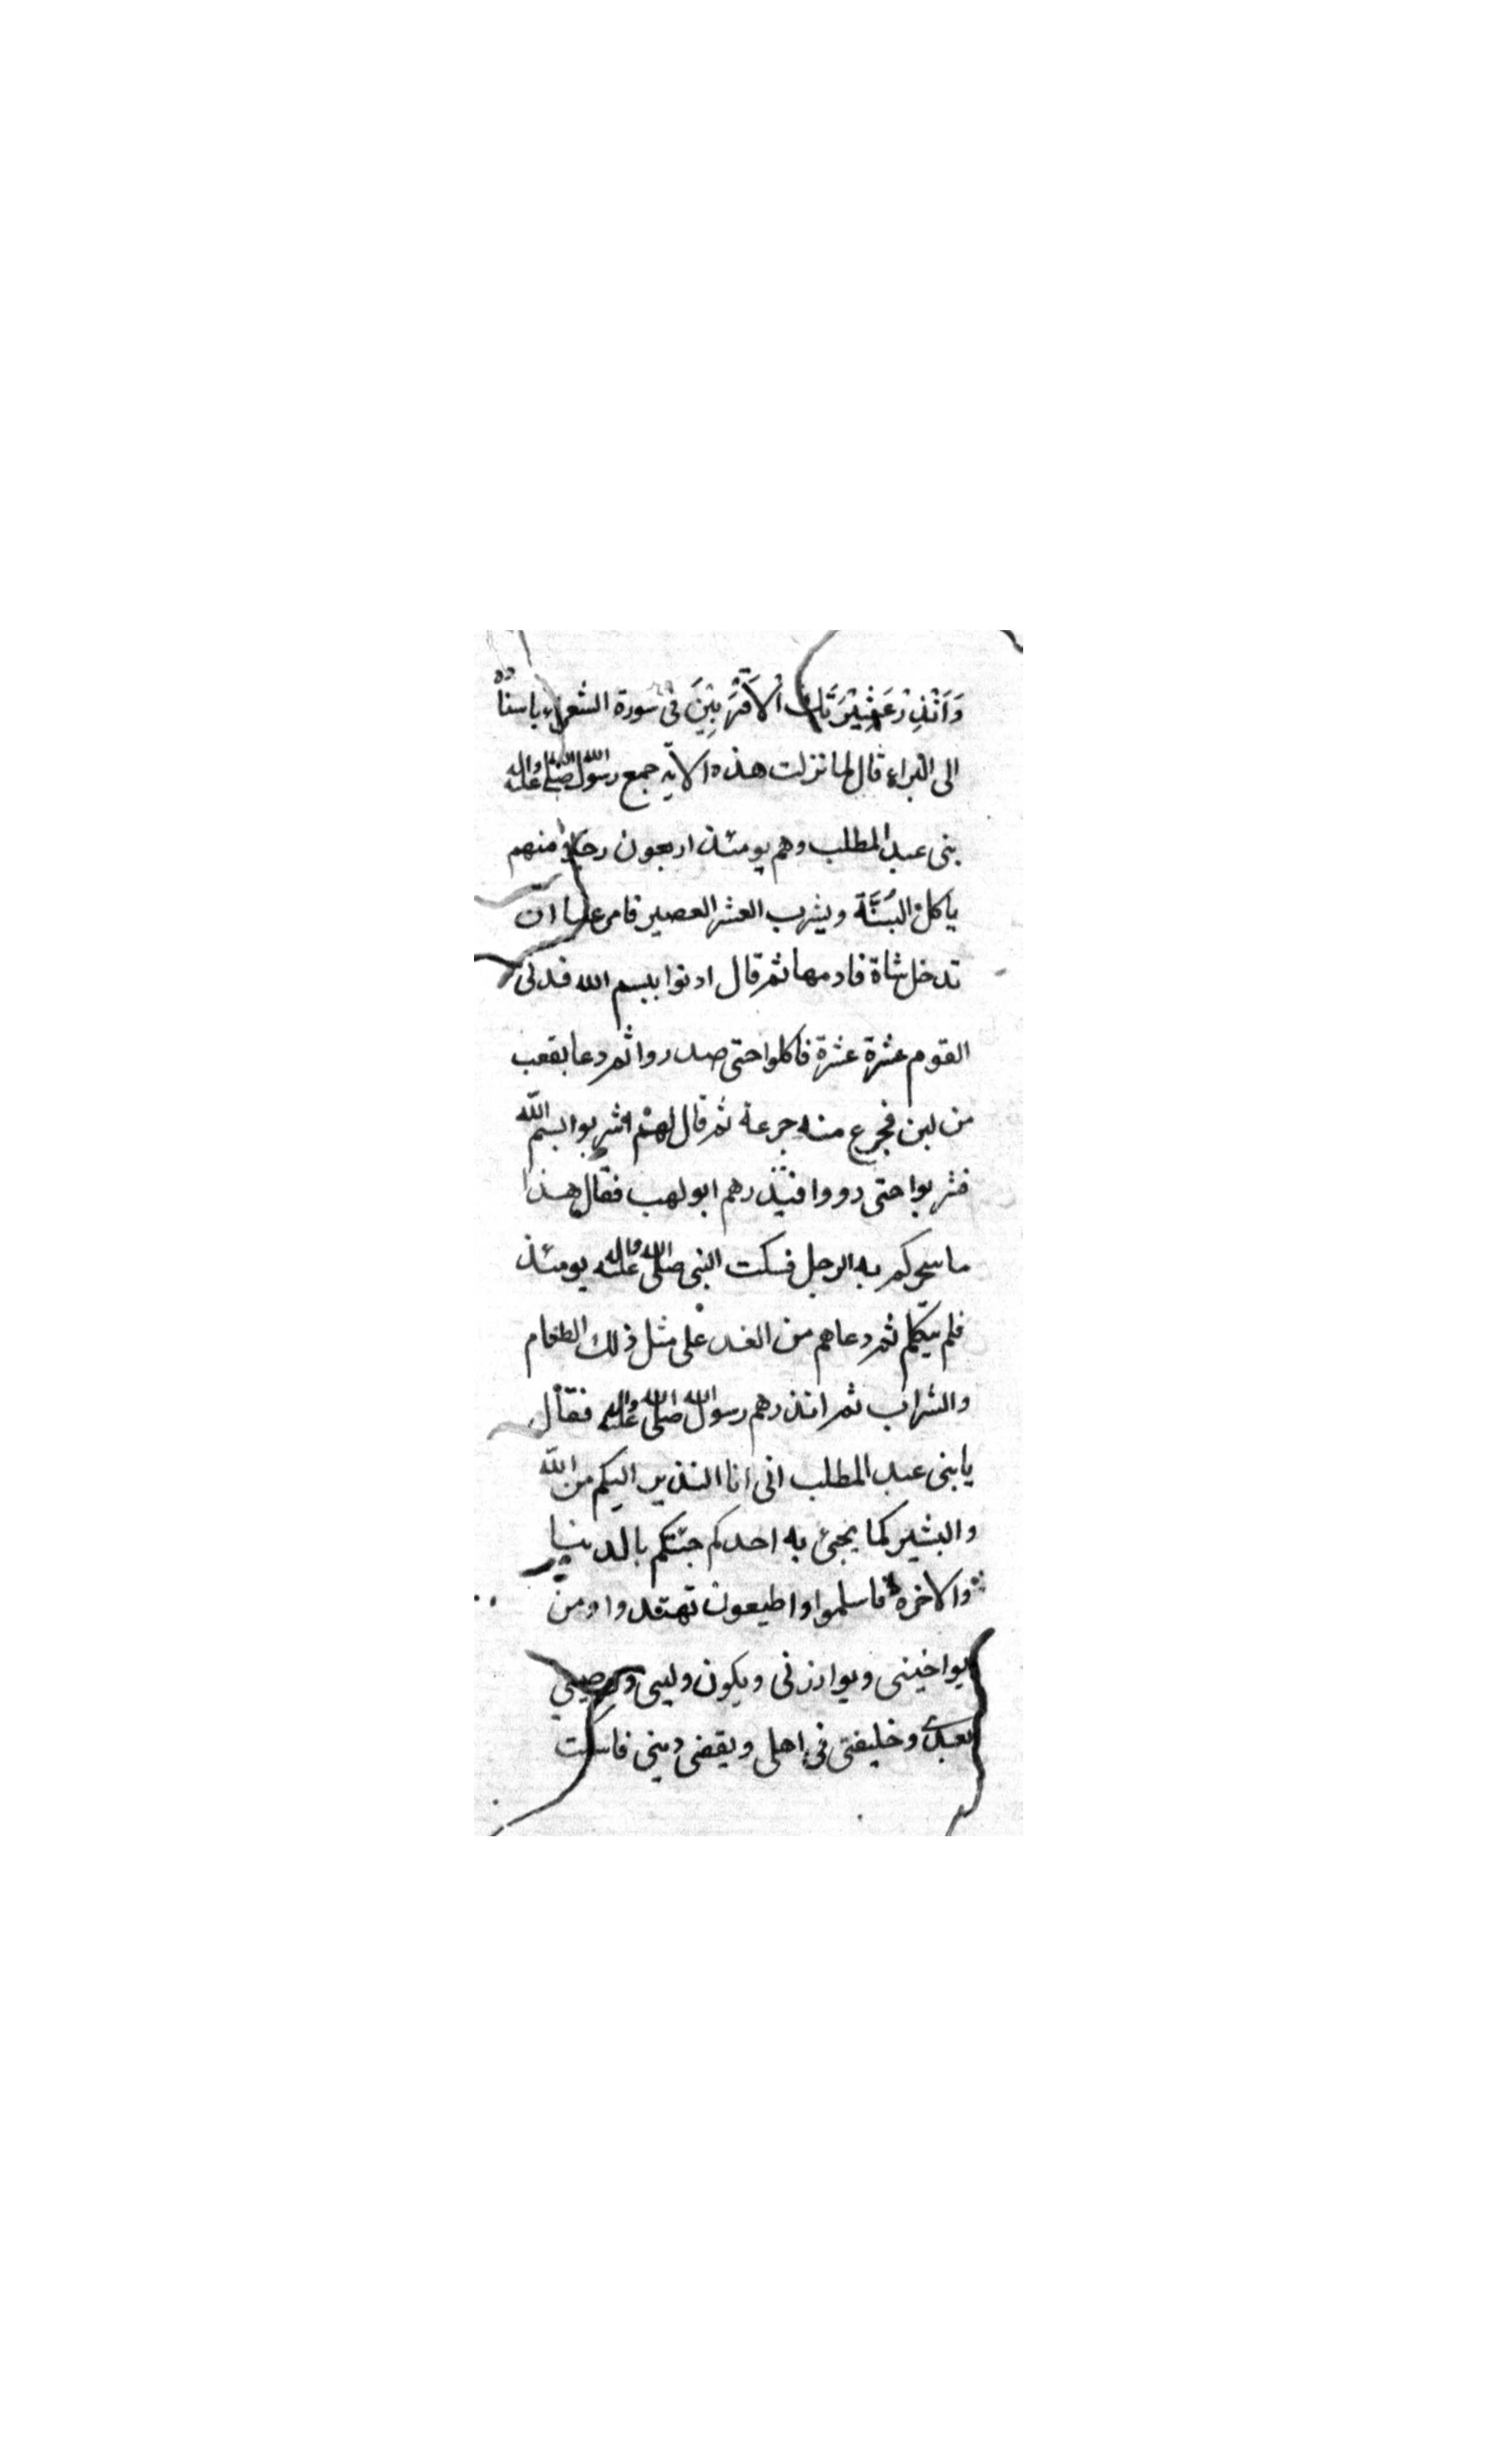 وَاَنْذِرْ عَشِيْرَتَكَ الْاَقْرَبِيْنَ فى سورة الشعراء باسناده
الى البراء قال لما نزلت هذه الاية جمع رسول الله صلى الله عليه واله
بنى عبد المطلب وهم يومئذ اربعون رجلا منهم
ياكل البُسَنَّة ويشرب العشر العصير فامر عليا ان
تدخل شاة فادمها ثم قال ادنوا ببسم الله فدنى
القوم عشرة عشرة فاكلوا حتى صدروا ثم دعا بقعب
من لبن فجرع منه جرعة ثم قال لهم اشربوا بسم الله
فشربوا حتى رووا فبدرهم ابو لهب فقال هذا
ما سحركم به الرجل فسكت النبى صلى الله عليه واله يومئذ
فلم يتكلم ثم دعاهم من الغد على مثل ذلك الطعام
والشراب ثم انذرهم رسول الله صلى الله عليه واله فقال
يا بنى عبد المطلب انى انا النذير اليكم من الله
والبشير كما يجئ به احدكم جئتكم بالدنيا
والاخرة فاسلموا واطيعون تهتدوا ومن
يواخينى ويوازرنى ويكون وليى ووصيى
بعدى وخليفتى فى اهلى ويقضى دينى فاسكت